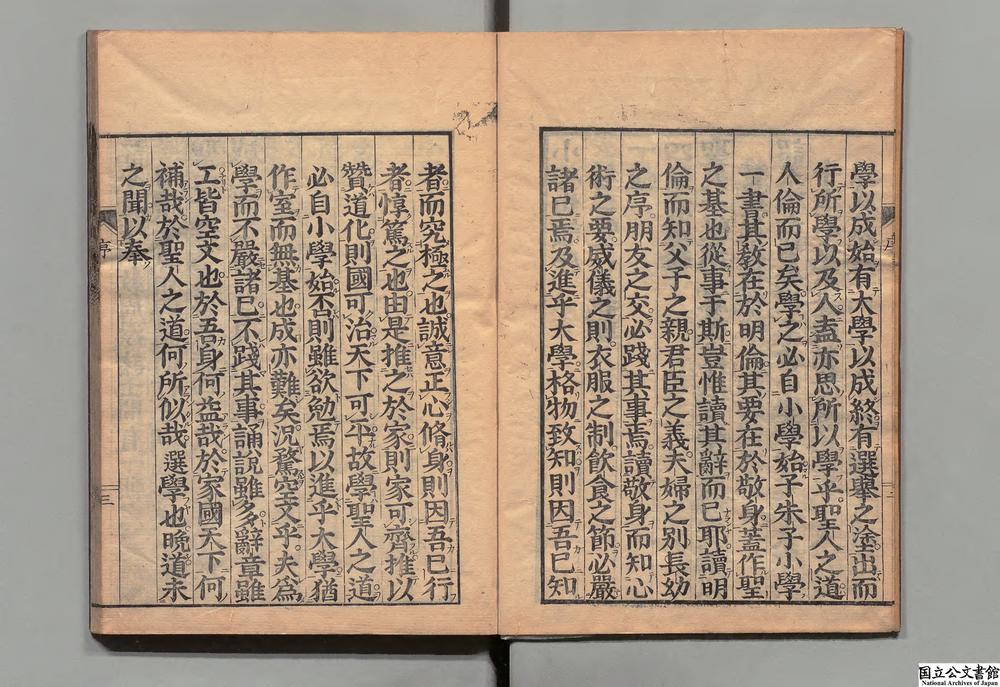 學以成始有大學以成終有選舉之塗出而
行所學以及人盍亦思所以學乎聖人之道
人倫而已矣學之必自小學始子朱子小學
一書其敎在於明倫其要在於敬身蓋作聖
之基也從事于斯豈惟讀其辭而已耶讀明
倫而知父子之親君臣之義夫婦之別長幼
之序朋友之交必踐其事焉讀敬身而知心
術之要威儀之則衣服之制飮食之節必嚴
諸已焉及進乎大學格物致知則因吾已知
者而究極之也誠意正心脩身則因吾已行
者惇篤之也由是推之於家則家可齊推以
贊道化則國可治天下可平故學聖人之道
必自小學始否則雖欲勉焉以進乎大學猶
作室而無基也成亦難矣況騖空文乎夫爲
學而不嚴諸已不踐其事誦說雖多辭章雖
工皆空文也於吾身何益哉於家國天下何
補哉於聖人之道何所似哉選學也晩道未
之聞以奉
序
三
国立公文書館
National Archives of Japan